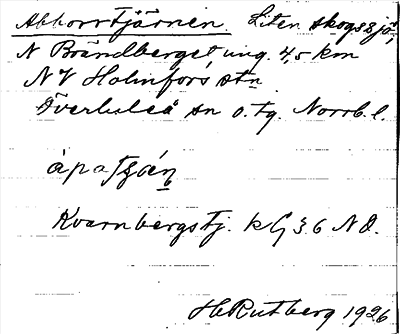 Abborrtjärnen. Liten skogssjö,
N Brändberget ung. 4,5 km
NV Holmfors stn
Överluleå sn o. tg. Norrb. l.
Kvarnbergstj. kG 36 NO.
H Rutberg 1926